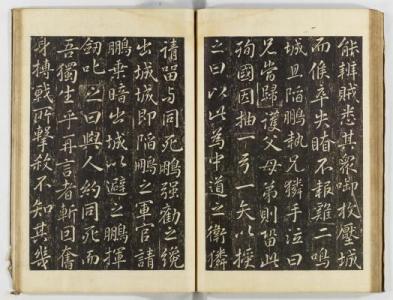 能辨賊悉其眾啣枚壓城
而候卒失睹不報雞二鳴
城且陷鵬執兄獜手泣曰
兄當歸護父母弟則留此
狥國因抽一弓一矢以授
之曰以此為中道之衛獜
請留与同死鵬强勸之纔
出城城即陷鵬之軍官請
鵬乘暗出城以避之鵬揮
劒叱之曰與人約同死而
吾獨生乎再言者斬回奮
身搏戰所擊殺不知其幾